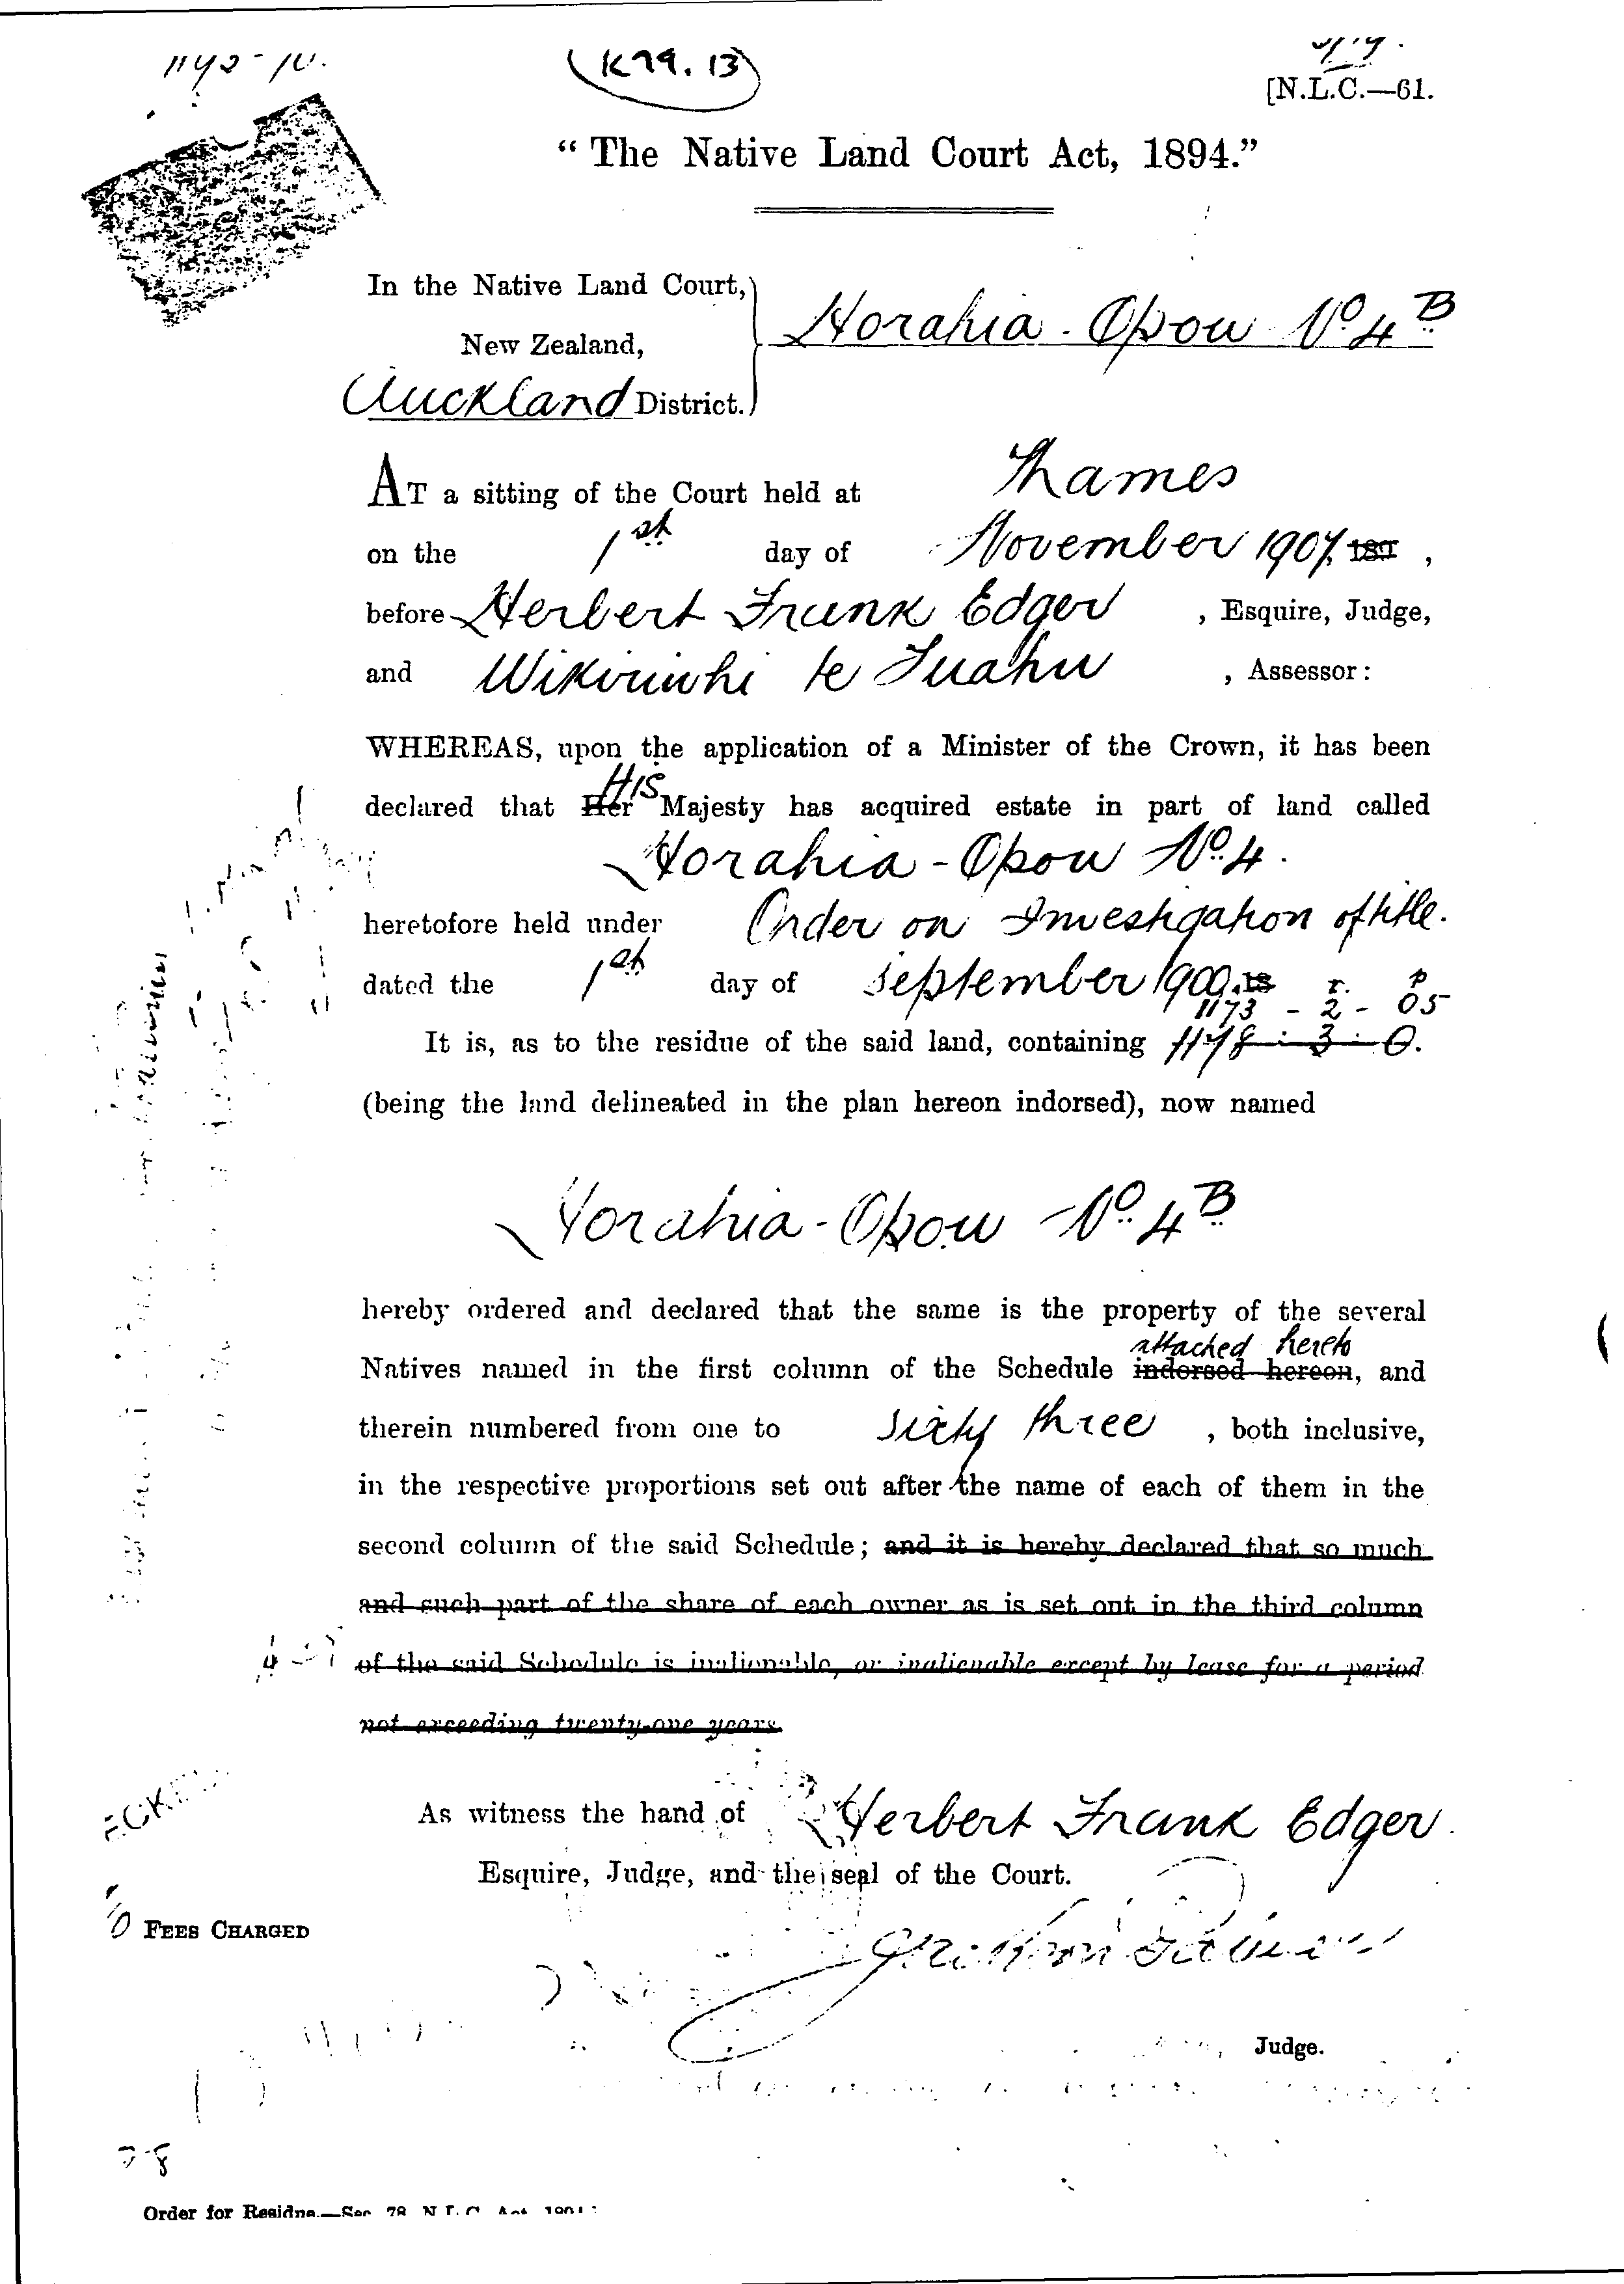 (K79. 13)
[N.L.C.—61.
“The Native Land Court Act, 1894.”
In the Native Land Court,
New Zealand,
Auckland District.
Horahia - Opou No 4B
AT a sitting of the Court held at Thames
on the 1st day of November 1907. 189 ,
before Herbert Frank Edger , Esquire, Judge,
and te Tuahu , Assessor:
WHEREAS, upon the application of a Minister of the Crown, it has been
His
declared that Her Majesty has acquired estate in part of land called
Horahia - Opou No. 4.
heretofore held under Order on Investigation of title.
dated the 1st day of September 1900. 18
r. p
1173 - 2 - 05
It is, as to the residue of the said land, containing 1178 : 3 : 0.
(being the land delineated in the plan hereon indorsed), now named
Horahia - Opou No. 4B
hereby ordered and declared that the same is the property of the several
attached hereto
Natives named in the first column of the Schedule indorsed hereon, and
therein numbered from one to sixty three , both inclusive,
in the respective proportions set out after the name of each of them in the
second column of the said Schedule; and it is hereby declared that so much
and such part of the share of each owner as is set out in the third column
of the said Schedule is inalienable, or inalienable except by lease for a period
not exceeding twenty-one years.
As witness the hand of Herbert Frank Edger
Esquire, Judge, and the seal of the Court.
FEES CHARGED
Judge.
Order for Residue.—Sec. 78, N.L.C. Act